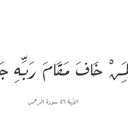 خَافَ مَقَامَ رَبِّهِ
الآية ٤٦ سورة الرحمن